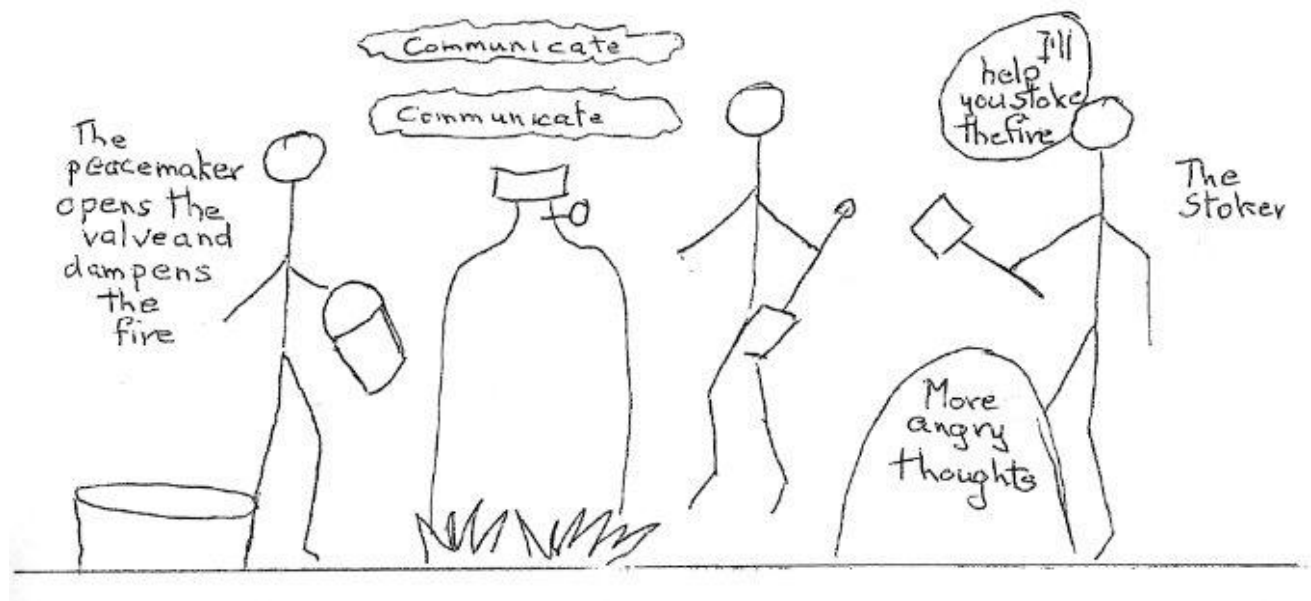 The
peacemaker
opens the
valve and
dampens
the
fire
Communicate
Communicate
I'll
help
you stoke
the fire
The
Stoker
More
angry
thoughts